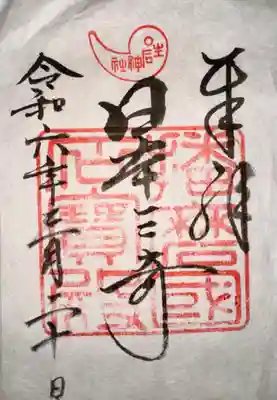 生石神社
奉拝
日本三奇
令和六年三月二十日